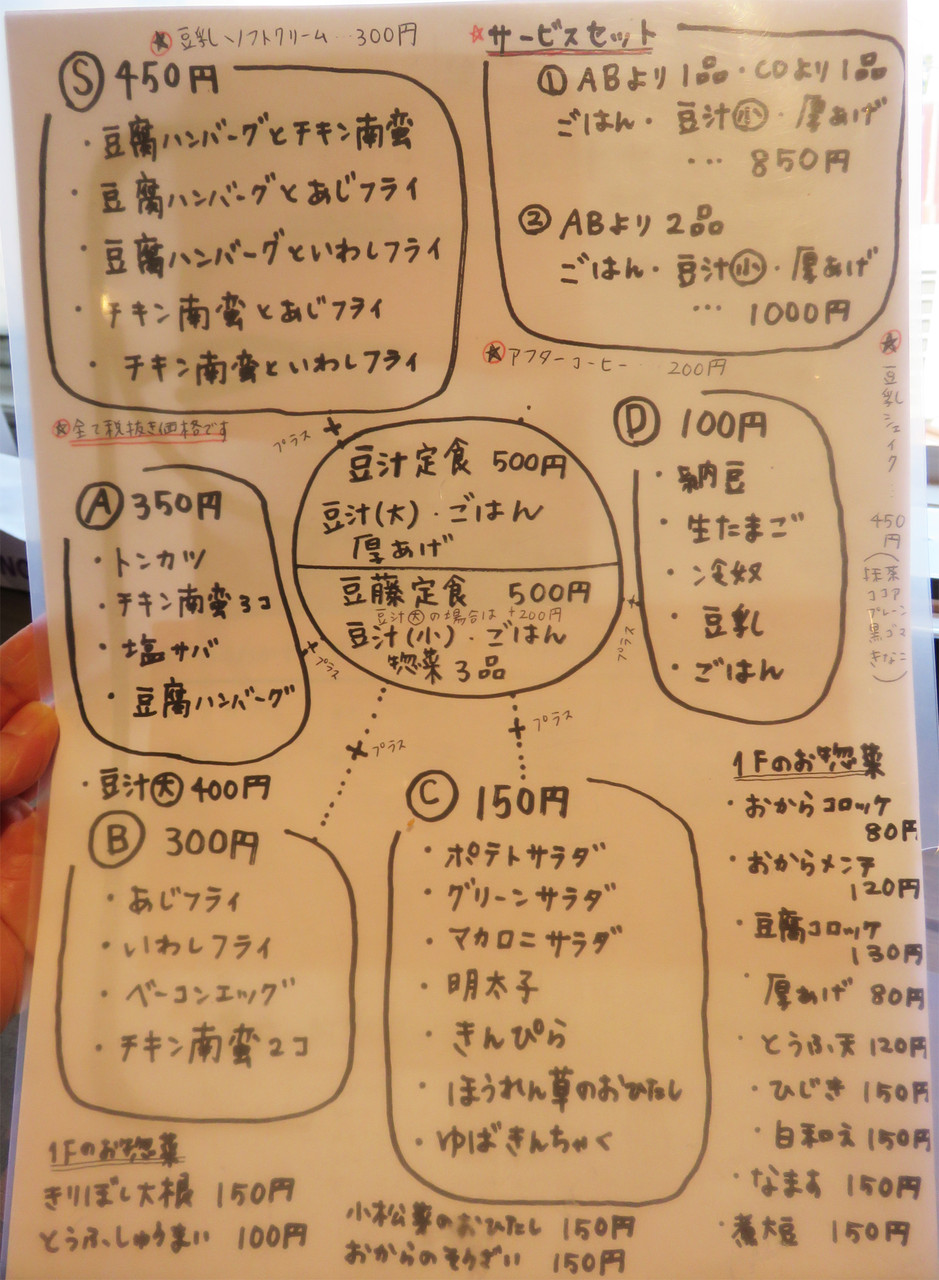 ☆豆乳ソフトクリーム…300円
Ⓢ 450円
・豆腐ハンバーグとチキン南蛮
・豆腐ハンバーグとあじフライ
・豆腐ハンバーグといわしフライ
・チキン南蛮とあじフライ
・チキン南蛮といわしフライ
☆サービスセット
① ABより1品・CDより1品
ごはん・豆汁㊙小・厚あげ
… 850円
② ABより2品
ごはん・豆汁小・厚あげ
… 1000円
☆アフターコーヒー…200円
☆全て税抜き価格です
プラス +
豆汁定食 500円
豆汁(大)・ごはん
厚あげ
豆藤定食 500円
豆汁大の場合は+200円
豆汁(小)・ごはん
惣菜3品
Ⓐ 350円
・トンカツ
・チキン南蛮3コ
・塩サバ
・豆腐ハンバーグ
+ プラス
Ⓓ 100円
・納豆
・生たまご
・冷奴
・豆乳
・ごはん
+ プラス
☆豆乳シェイク……450円
(抹茶
ココア
プレーン
黒ゴマ
きなこ)
・豆汁大 400円
Ⓑ 300円
・あじフライ
・いわしフライ
・ベーコンエッグ
・チキン南蛮2コ
+ プラス
Ⓒ 150円
・ポテトサラダ
・グリーンサラダ
・マカロニサラダ
・明太子
・きんぴら
・ほうれん草のおひたし
・ゆばきんちゃく
+ プラス
1Fのお惣菜
・おからコロッケ
80円
・おからメンチ
120円
・豆腐コロッケ
130円
・厚あげ 80円
・とうふ天 120円
・ひじき 150円
・白和え 150円
・なます 150円
・煮大豆 150円
1Fのお惣菜
きりぼし大根 150円
とうふしゅうまい 100円
小松菜のおひたし 150円
おからのそうざい 150円